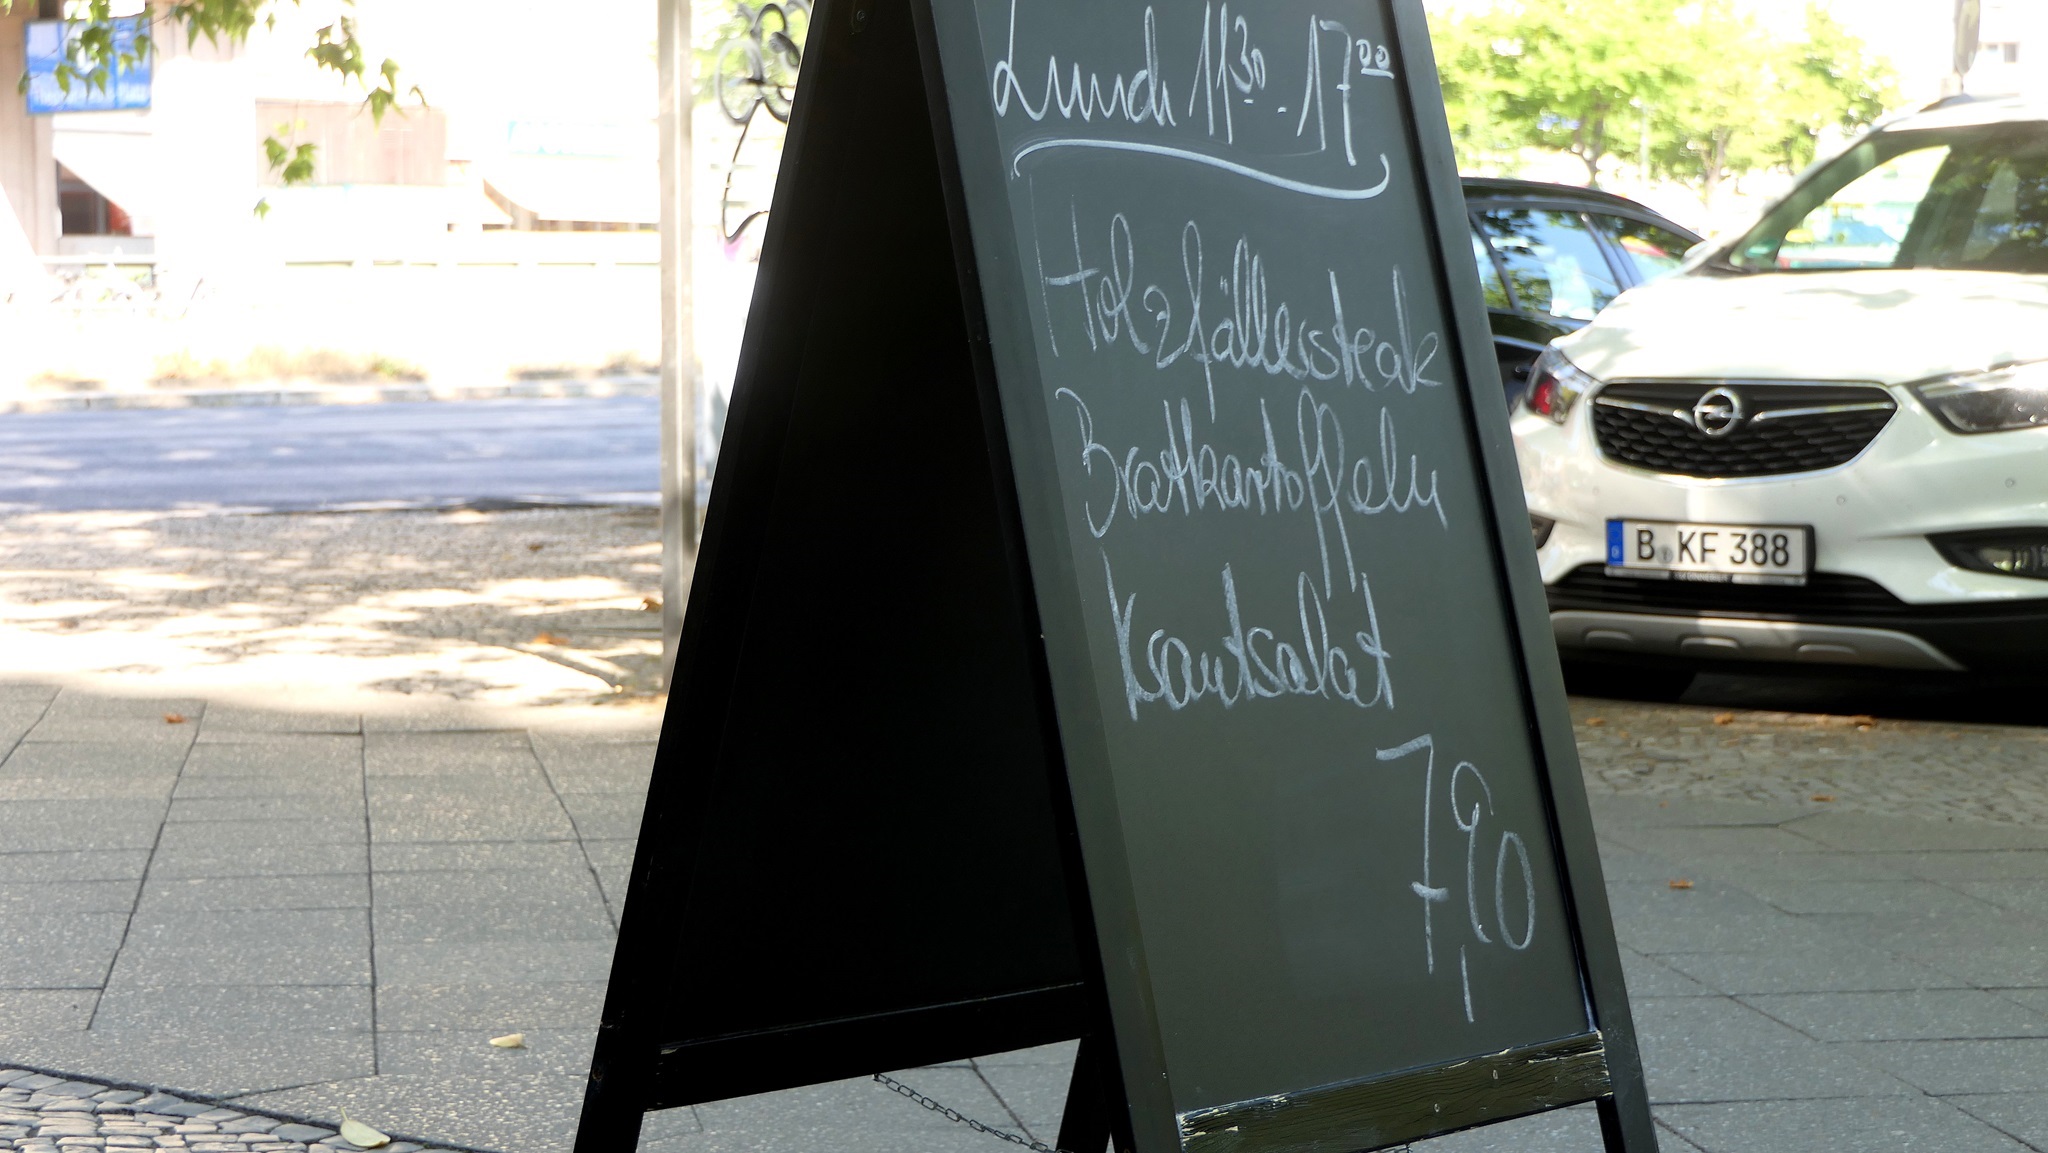 Lunch 11³⁰ - 17⁰⁰
Holzfällersteak
Bratkartoffeln
Krautsalat
7,90
B KF 388